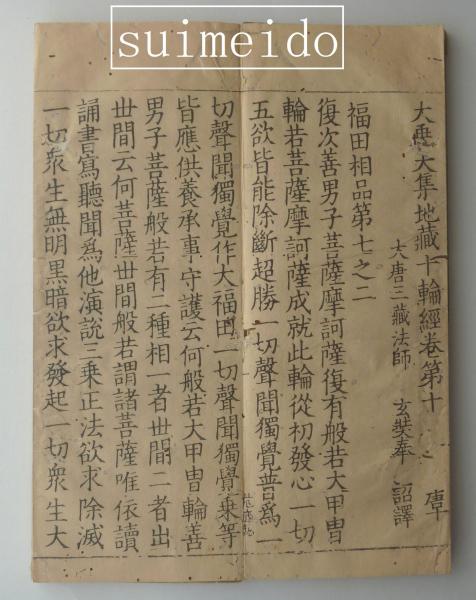 suimeido
大乘大集地藏十輪經卷第十
大唐三藏法師 玄奘奉 詔譯
福田相品第七之二
復次善男子菩薩摩訶薩復有般若大甲冑
輪若菩薩摩訶薩成就此輪從初發心一切
五欲皆能除斷超勝一切聲聞獨覺普為一
切聲聞獨覺作大福田一切聲聞獨覺乘等
皆應供養承事守護云何般若大甲冑輪善
男子菩薩般若有二種相一者世間二者出
世間云何菩薩世間般若謂諸菩薩唯依讀
誦書寫聽聞為他演說三乘正法欲求除滅
一切衆生無明黑暗欲求發起一切衆生大